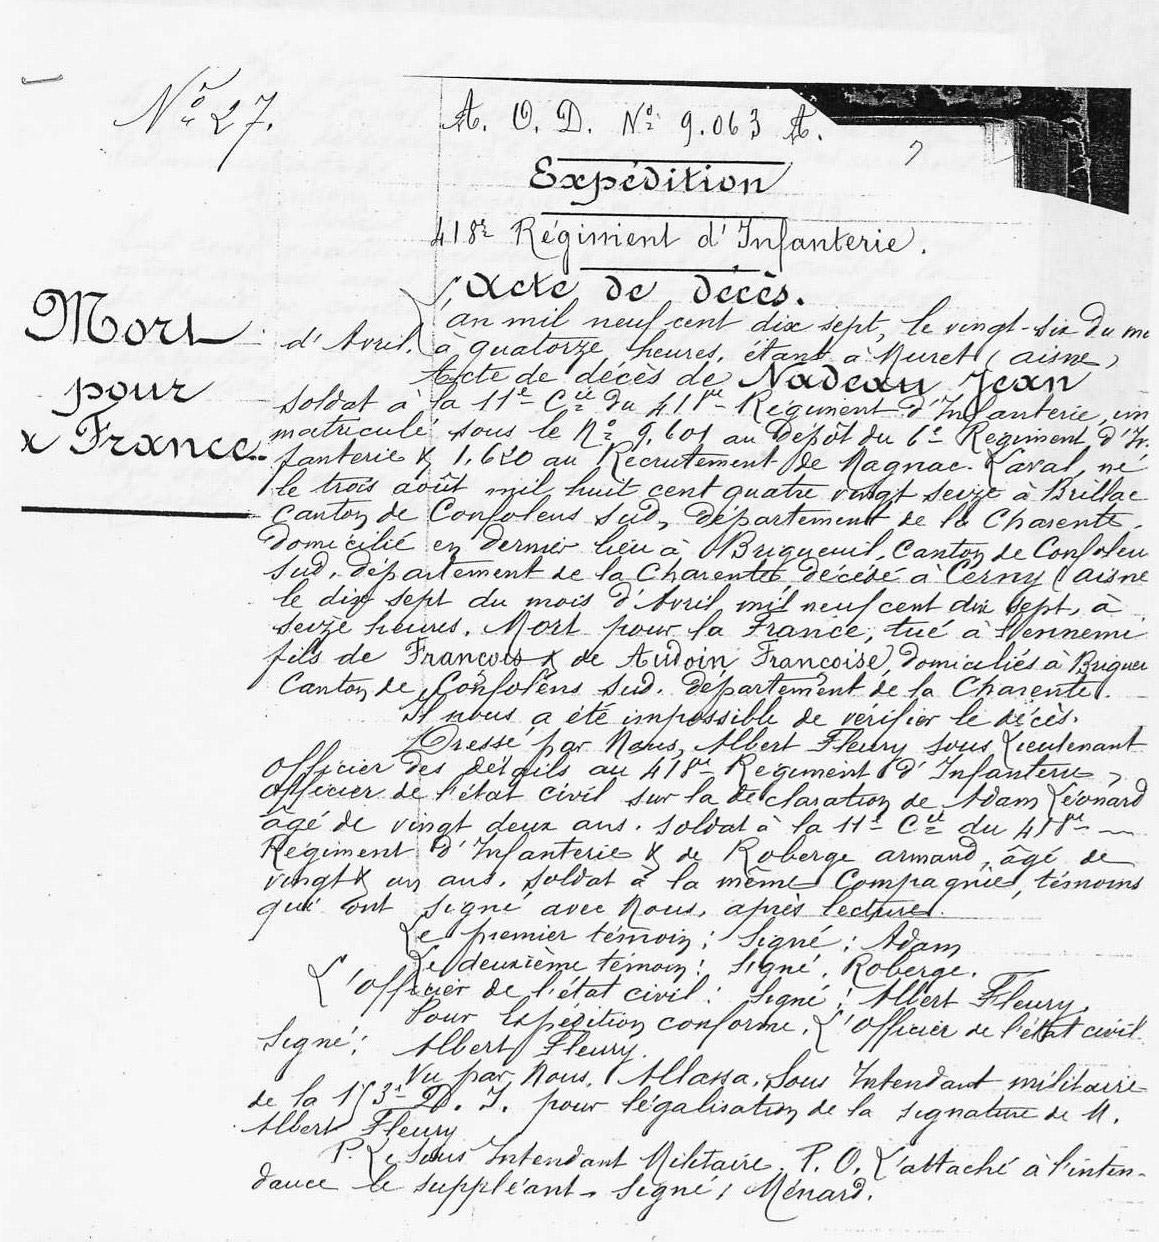 N° 27.
A. O. D. N° 9.063 A.
Expédition
418e Régiment d'Infanterie.
Acte de décès.
Mort
pour
France
L'an mil neuf cent dix sept, le vingt-six du mo
d'Avril, à quatorze heures, étant à Muret (Aisne)
Acte de décès de Nadeau Jean
soldat à la 11e Cie du 418me Régiment d'Infanterie, im
matriculé sous le N° 9.601 au Dépôt du 6e Régiment d'In
fanterie & 1.620 au Recrutement de Magnac-Laval, né
le trois août mil huit cent quatre vingt seize à Brillac
Canton de Confolens Sud, département de la Charente.
domicilié en dernier lieu à Brigueuil, Canton de Confolen
Sud, département de la Charente décédé à Cerny (Aisne
le dix sept du mois d'Avril mil neuf cent dix sept, à
seize heures. Mort pour la France, tué à l'ennemi
fils de François & de Audoin Françoise, domiciliés à Brigueu
Canton de Confolens Sud, département de la Charente.
Il nous a été impossible de vérifier le décès.
Dressé par Nous, Albert Fleury sous Lieutenant
Officier des détails au 418me Régiment d'Infanterie,
Officier de l'état civil sur la déclaration de Adam Léonard
âgé de vingt deux ans. soldat à la 11e Cie du 418me
Régiment d'Infanterie & de Roberge armand, âgé de
vingt & un ans, soldat à la même Compagnie, témoins
qui ont signé avec Nous, après lecture.
Le premier témoin: Signé: Adam
Le deuxième témoin: Signé, Roberge.
L'officier de l'état civil: Signé: Albert Fleury.
Pour Expédition conforme, L'officier de l'état civil
Signé: Albert Fleury.
Vu par Nous, Allassa, Sous Intendant militaire
de la 153e D. I. pour légalisation de la signature de M.
Albert Fleury
P. Le Sous Intendant Militaire. P. O. L'attaché à l'inten-
dance le suppléant. Signé: Ménard.